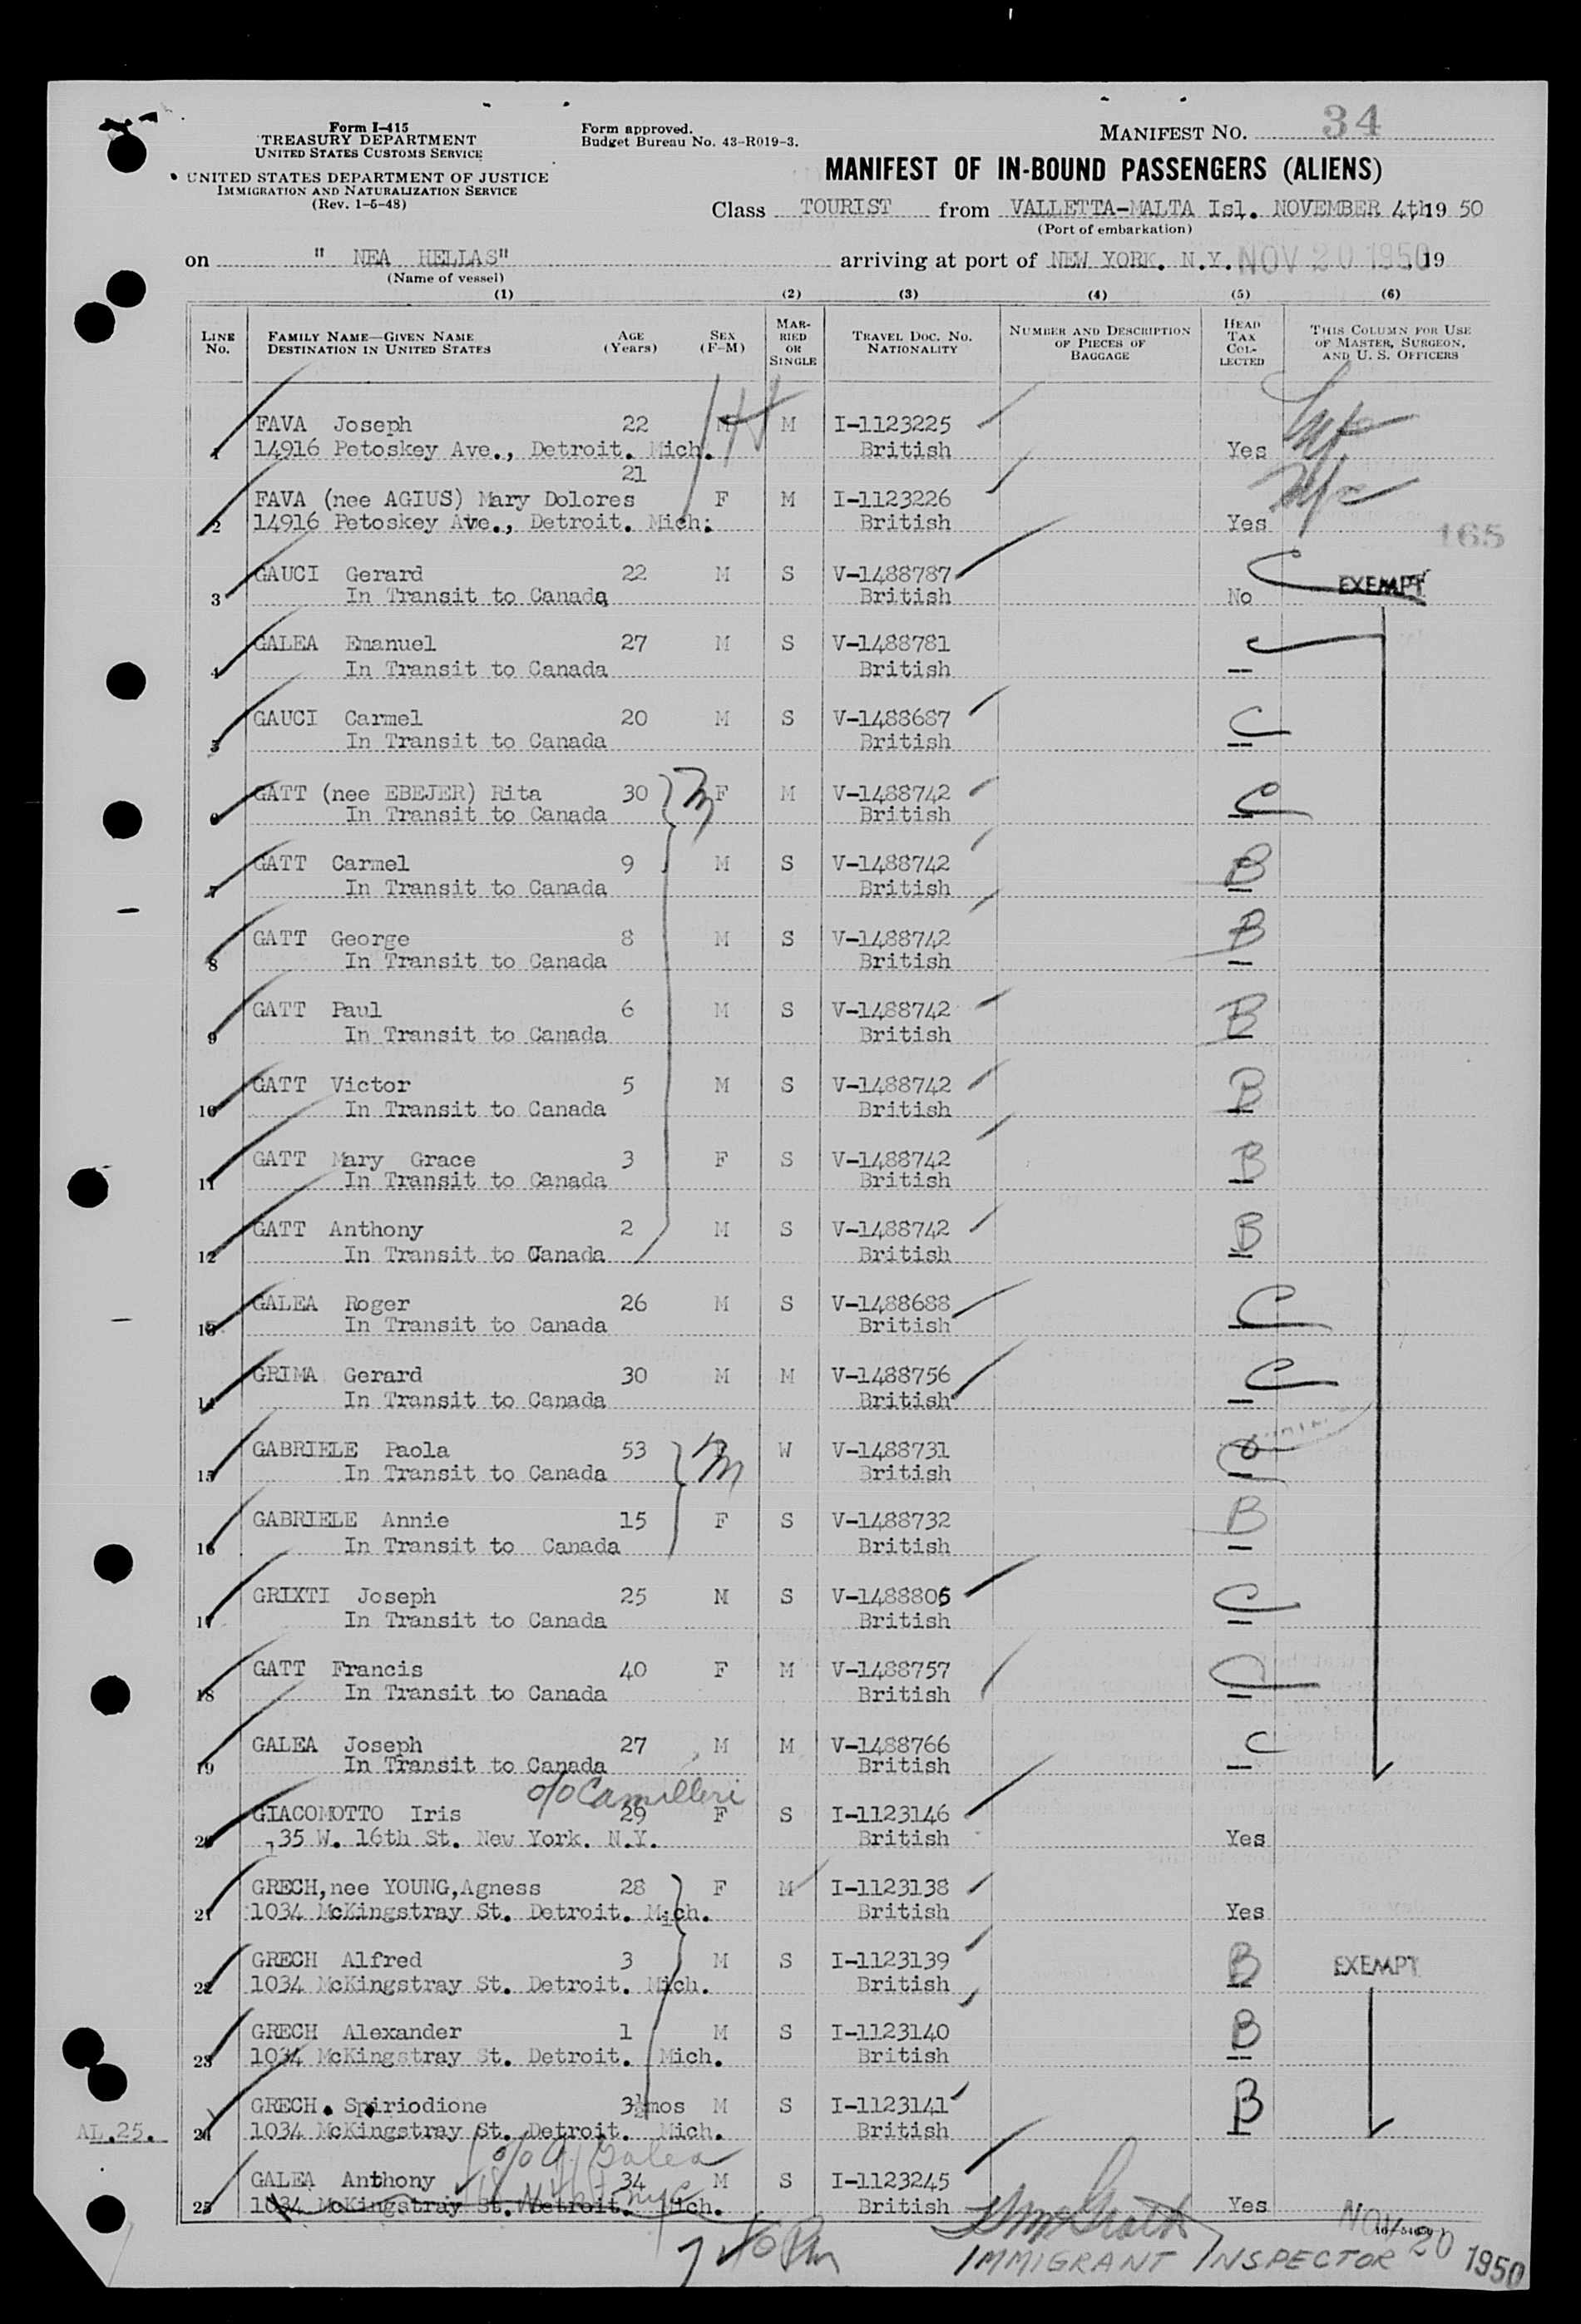 Form I-415
TREASURY DEPARTMENT
UNITED STATES CUSTOMS SERVICE
UNITED STATES DEPARTMENT OF JUSTICE
IMMIGRATION AND NATURALIZATION SERVICE
(Rev. 1-5-48)
Form approved.
Budget Bureau No. 43-R019-3.
MANIFEST NO. 34
MANIFEST OF IN-BOUND PASSENGERS (ALIENS)
Class TOURIST from VALLETTA-MALTA Isl. NOVEMBER 4th, 19 50
(Port of embarkation)
on " NEA HELLAS" arriving at port of NEW YORK. N.Y. NOV 20 1950, 19
(Name of vessel)
(1) (2) (3) (4) (5) (6)
LINE No. FAMILY NAME—GIVEN NAME DESTINATION IN UNITED STATES AGE (Years) SEX (F-M) MARRIED OR SINGLE TRAVEL DOC. NO. NATIONALITY NUMBER AND DESCRIPTION OF PIECES OF BAGGAGE HEAD TAX COLLECTED THIS COLUMN FOR USE OF MASTER, SURGEON, AND U. S. OFFICERS
FAVA Joseph 22 M M I-1123225
1 14916 Petoskey Ave., Detroit. Mich. British Yes
21
FAVA (nee AGIUS) Mary Dolores F M I-1123226
2 14916 Petoskey Ave., Detroit. Mich. British Yes
165
GAUCI Gerard 22 M S V-1488787 C EXEMPT
3 In Transit to Canada British No
GALEA Emanuel 27 M S V-1488781 C
4 In Transit to Canada British --
GAUCI Carmel 20 M S V-1488687 C
5 In Transit to Canada British --
GATT (nee EBEJER) Rita 30 F M V-1488742 C
6 In Transit to Canada British --
GATT Carmel 9 M S V-1488742 B
7 In Transit to Canada British --
GATT George 8 M S V-1488742 B
8 In Transit to Canada British --
GATT Paul 6 M S V-1488742 B
9 In Transit to Canada British --
GATT Victor 5 M S V-1488742 B
10 In Transit to Canada British --
GATT Mary Grace 3 F S V-1488742 B
11 In Transit to Canada British --
GATT Anthony 2 M S V-1488742 B
12 In Transit to Canada British --
GALEA Roger 26 M S V-1488688 C
13 In Transit to Canada British --
GRIMA Gerard 30 M M V-1488756 C
14 In Transit to Canada British --
GABRIELE Paola 53 W V-1488731 C
15 In Transit to Canada British --
GABRIELE Annie 15 F S V-1488732 B
16 In Transit to Canada British --
GRIXTI Joseph 25 M S V-1488805 C
17 In Transit to Canada British --
GATT Francis 40 F M V-1488757 C
18 In Transit to Canada British --
GALEA Joseph 27 M M V-1488766 C
19 In Transit to Canada British --
c/o Camilleri
GIACOMOTTO Iris 29 F S I-1123146
20 35 W. 16th St. New York. N.Y. British Yes
GRECH, nee YOUNG, Agness 28 F M I-1123138
21 1034 McKingstray St. Detroit. Mich. British Yes
GRECH Alfred 3 M S I-1123139 B EXEMPT
22 1034 McKingstray St. Detroit. Mich. British --
GRECH Alexander 1 M S I-1123140 B
23 1034 McKingstray St. Detroit. Mich. British --
GRECH. Spiriodione 3½mos M S I-1123141 B
AL.25. 24 1034 McKingstray St. Detroit. Mich. British --
Galea
GALEA Anthony 34 M S I-1123245
25 1034 McKingstray St. Detroit. Mich. British Yes
NYC
IMMIGRANT INSPECTOR
NOV 20 1950